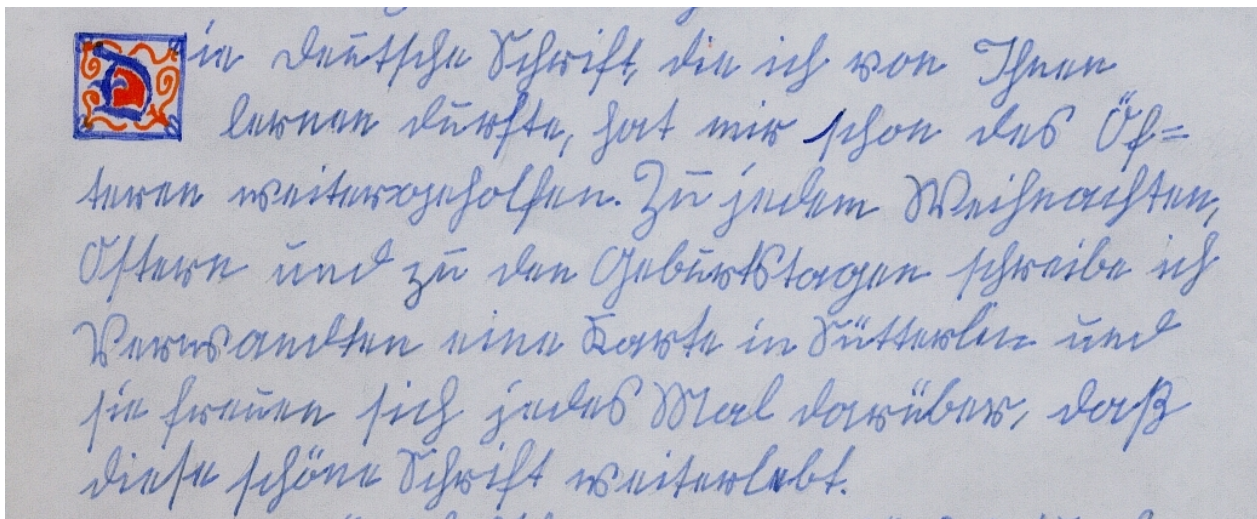 Die deutsche Schrift, die ich von Ihnen
lernen durfte, hat mir schon des Öf=
teren weitergeholfen. Zu jedem Weihnachten,
Ostern und zu den Geburtstagen schreibe ich
Verwandten eine Karte in Sütterlin und
sie freuen sich jedes Mal darüber, daß
diese schöne Schrift weiterlebt.